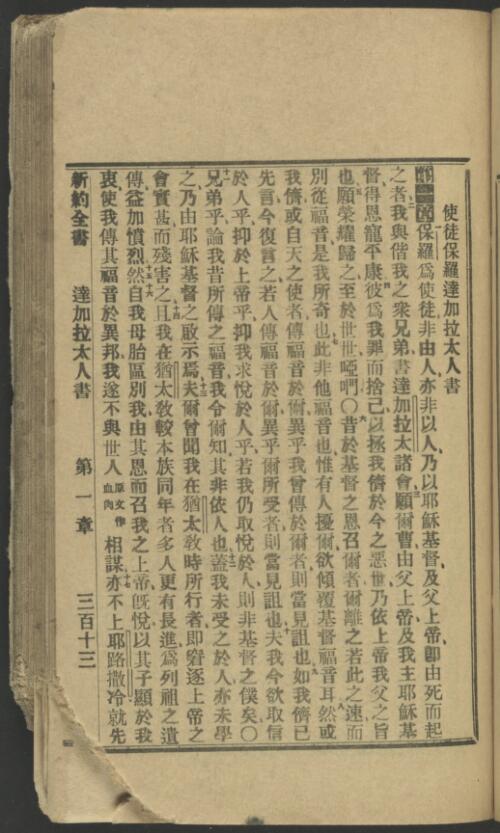 使徒保羅達加拉太人書
第一章 一 保羅爲使徒、非由人、亦非以人、乃以耶穌基督、及父上帝、卽由死而起
之者、二 我與偕我之衆兄弟、書達加拉太諸會、三 願爾曹由父上帝、及我主耶穌基
督、得恩寵平康、四 彼爲我罪而捨己、以拯我儕於今之惡世、乃依上帝我父之旨
也、五 願榮耀歸之、至於世世、啞們、〇六 昔於基督之恩召爾者、爾離之若此之速、而
別從福音、是我所奇也、七 此非他福音也、惟有人擾爾、欲傾覆基督福音耳、八 然或
我儕、或自天之使者、傳福音於爾、異乎我曾傳於爾者、則當見詛也、九 如我儕已
先言、今復言之、若人傳福音於爾、異乎爾所受者、則當見詛也、十 夫我今欲取信
於人乎、抑於上帝乎、抑我求悅於人乎、若我仍取悅於人、則非基督之僕矣、〇
十一 兄弟乎、論我昔所傳之福音、我令爾知其非依人也、十二 蓋我未受之於人、亦未學
之、乃由耶穌基督之啟示焉、十三 夫爾曾聞我在猶太敎時所行者、卽窘逐上帝之
會實甚、而殘害之、十四 且我在猶太敎、較本族同年者多人、更有長進、爲列祖之遺
傳、益加憤烈、十五 然自我母胎區別我、由其恩而召我之上帝、十六 旣悅以其子顯於我
衷、使我傳其福音於異邦、我遂不與世人 原文作血肉 相謀、十七 亦不上耶路撒冷、就先
新約全書 達加拉太人書 第一章 三百十三